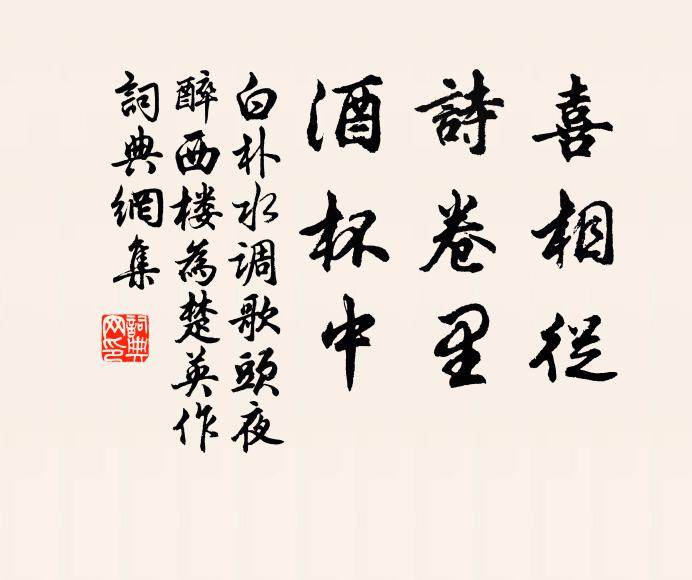 喜相從
詩卷里
酒杯中
白朴水调歌頭夜
醉西楼為楚英作
詞典網集
詞典
网印